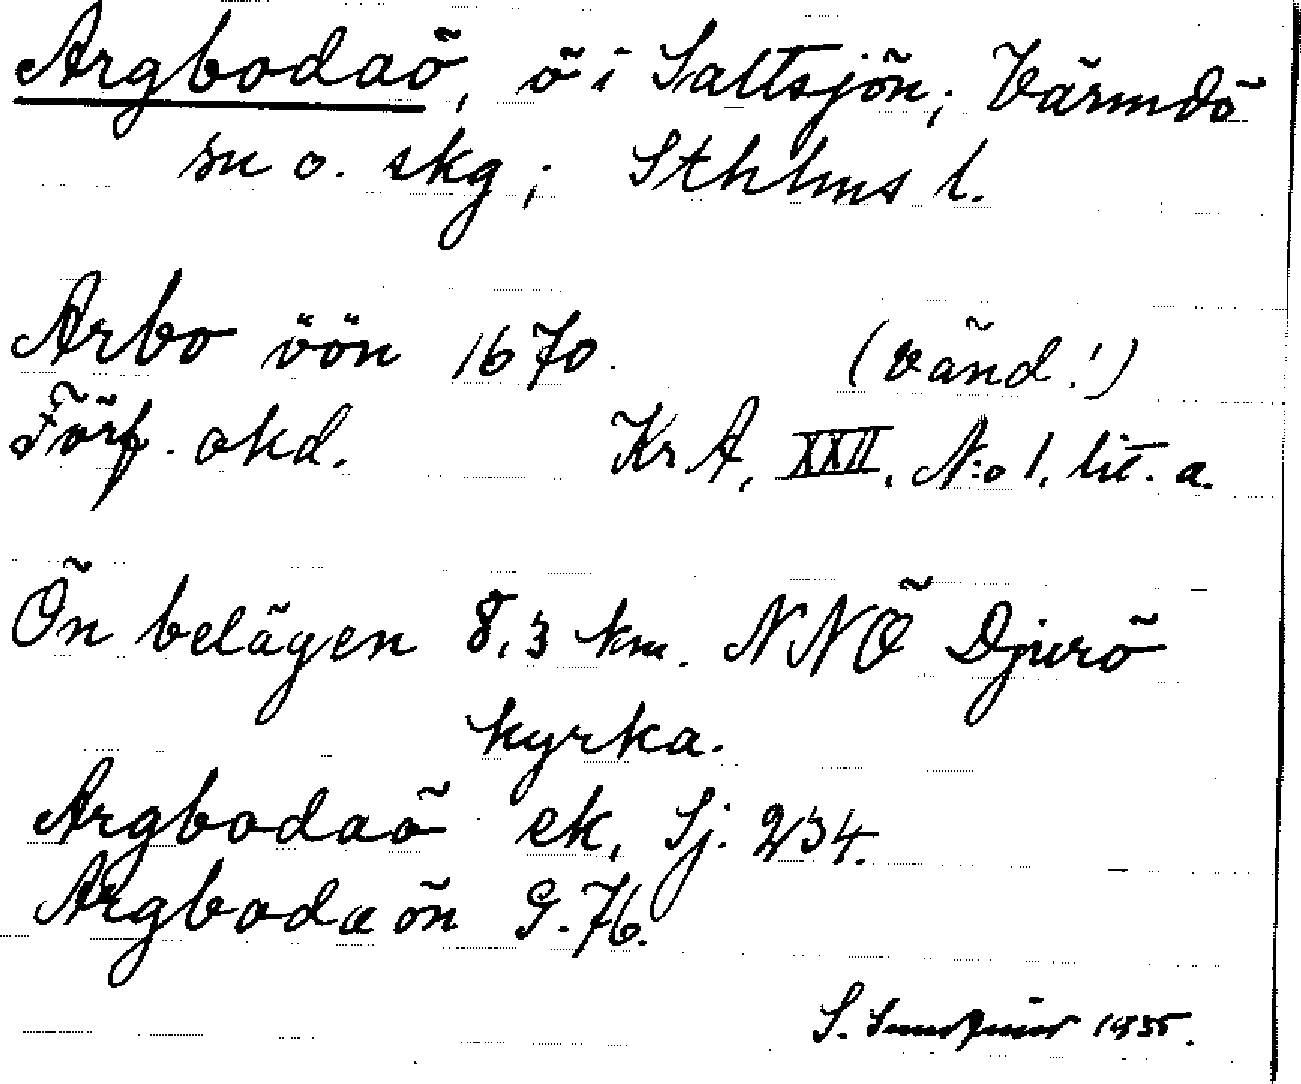 Argbodaö, ö i Saltsjön; Värmdö
sn o. skg; Sthlms l.
Arbo öön 1670. (vänd!)
Förf. okd. Kr A, XXII. N:o 1. lit. a.
Ön belägen 8,3 km. NNÖ Djurö
kyrka.
Argbodaö ek, Sj. 234.
Argbodaön G. 76.
S. 1935.